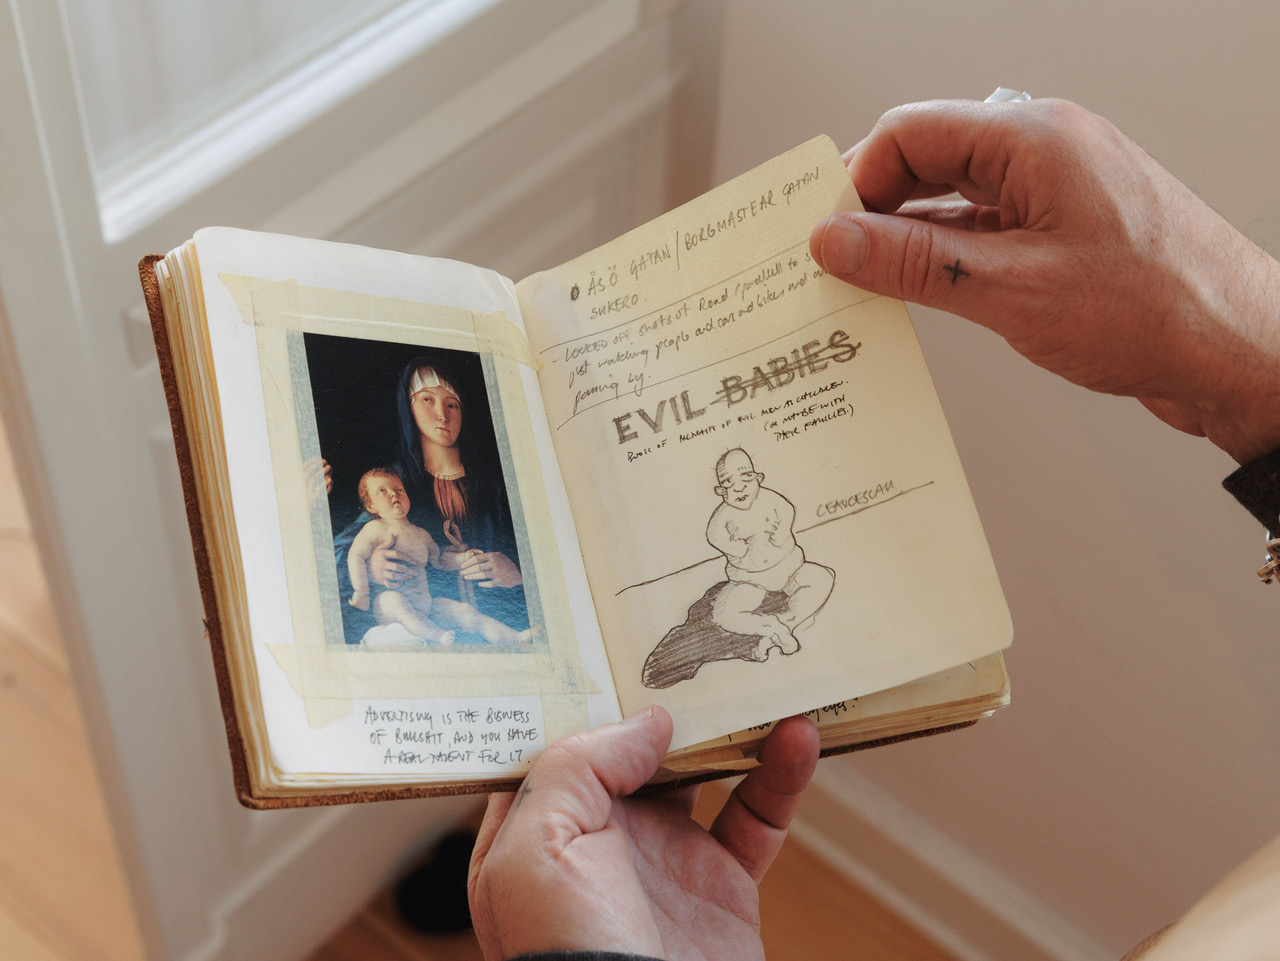 ADVERTISING IS THE BISNESS
OF BULLSHIT, AND YOU HAVE
A REAL TALENT FOR IT.
ÅSÖ GATAN / BORGMASTEAR GATAN
SUKERO.
- LOCKED OFF shots of Road (parallel to
just watching people and cars and bikes and
passing by.
EVIL BABIES
BOOK OF PORTRAITS OF EVIL MEN AS CHILDREN.
(OR MAYBE WITH
THEIR FAMILIES.)
CEAUCESCAU
eyes."